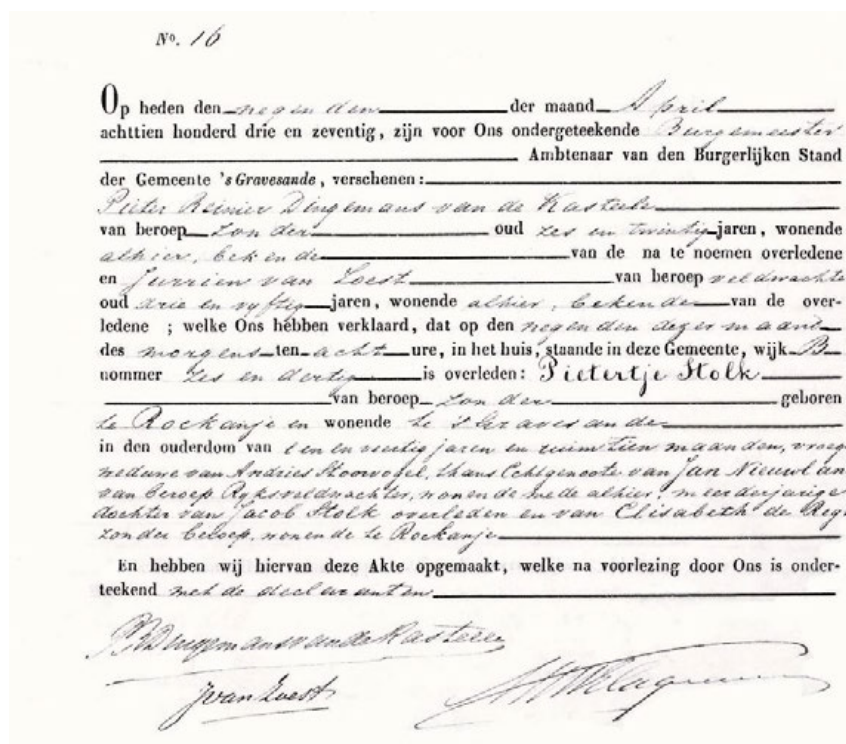 No. 16
Op heden den negenden der maand April
achttien honderd drie en zeventig, zijn voor Ons ondergeteekende Burgemeester
Ambtenaar van den Burgerlijken Stand
der Gemeente 's Gravesande, verschenen:
Pieter Reinier Dingemans van de Kasteele
van beroep zonder oud zes en twintig jaren, wonende
alhier, bekende van de na te noemen overledene
en Jurrien van Soest van beroep veldwachte
oud drie en vyftig jaren, wonende alhier, bekende van de over-
ledene ; welke Ons hebben verklaard, dat op den negenden dezer maand
des morgens ten acht ure, in het huis, staande in deze Gemeente, wijk B
nommer zes en dertig is overleden: Pietertje Stolk
van beroep zonder geboren
te Rockanje en wonende te 's Gravesande
in den ouderdom van een en veertig jaren en ruim tien maanden, vroeg
weduwe van Andries Hoorvogel, thans Echtgenoote van Jan Nieuwlan
van beroep Ryksveldwachter, wonende mede alhier; meerderjarige
dochter van Jacob Stolk overleden en van Elisabeth de Reg
zonder beroep, wonende te Rockanje
En hebben wij hiervan deze Akte opgemaakt, welke na voorlezing door Ons is onder-
teekend met de declaranten
PRDingemansvandeKasteele
JvanSoest